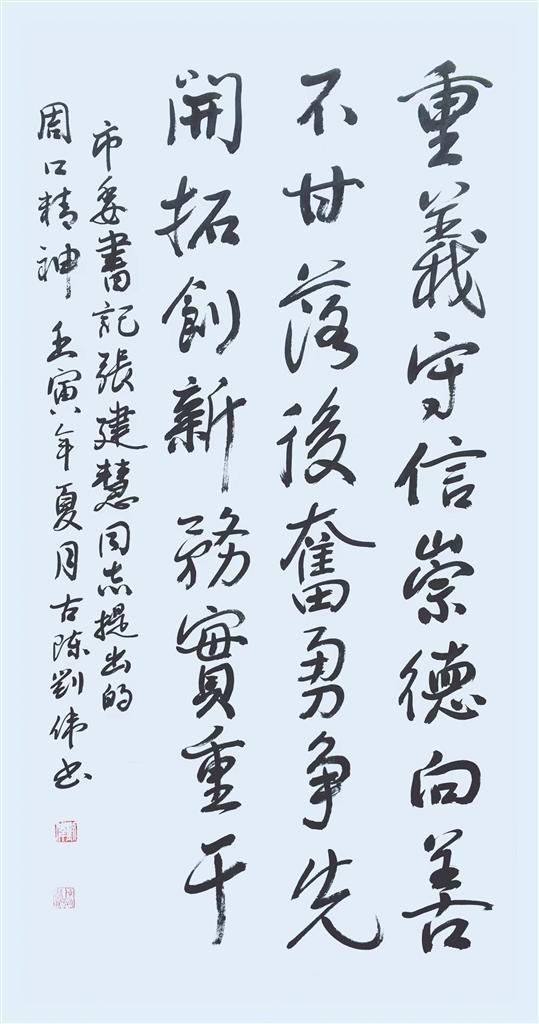 重義守信崇德向善
不甘落後奮勇争先
開拓創新務實重干
市委書記張建慧同志提出的
周口精神 壬寅年夏月古陈劉伟书